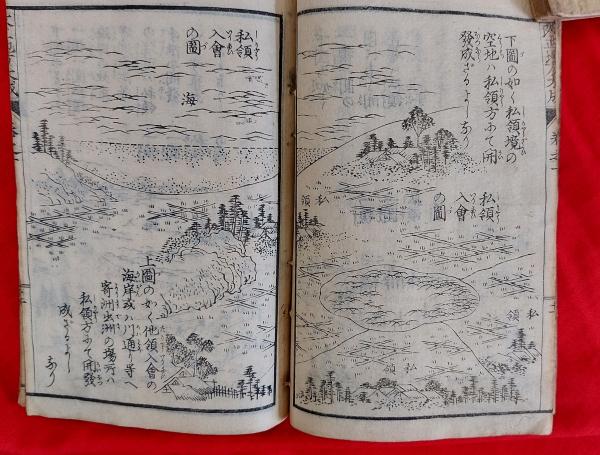 下圖の如く私領境の
空地ハ私領方ニて開
發成ざるよしなり
私領
入會
の圖
私領
私領
私領
私領
入會
の圖
海
上圖の如く他領入會の
海岸或ハ川通り等へ
寄洲出洲の場所ハ
私領方ニて開發
成ざるよし
なり